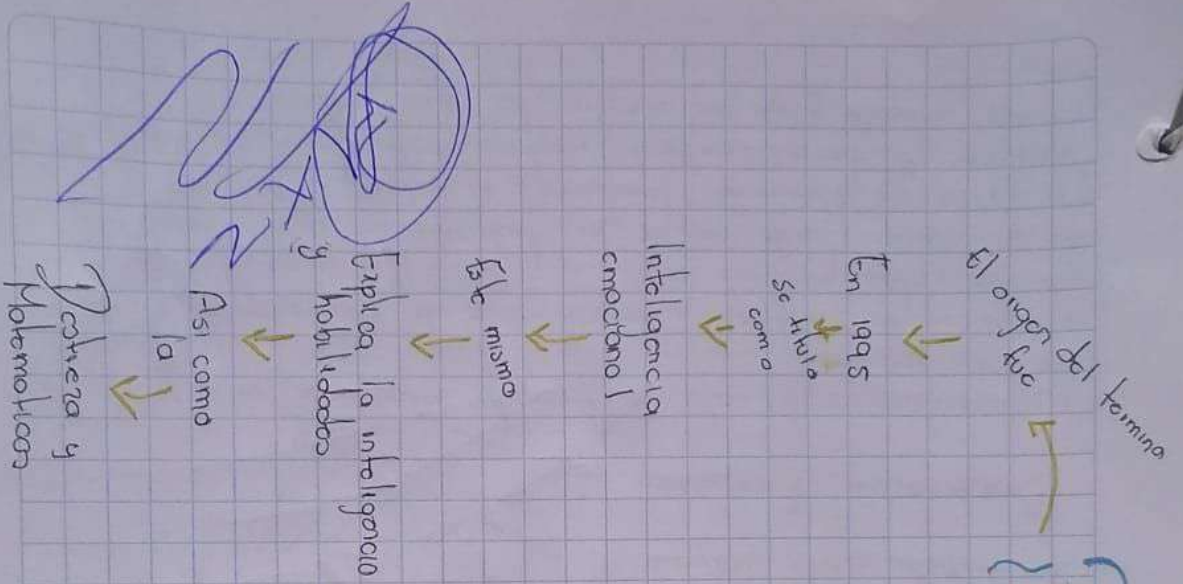 El origen del termino
fue
En 1995
se titulo
como
Inteligencia
emocional
Este mismo
Explica la inteligencia
y habilidades
Asi como
la
Destreza y
Matematicas